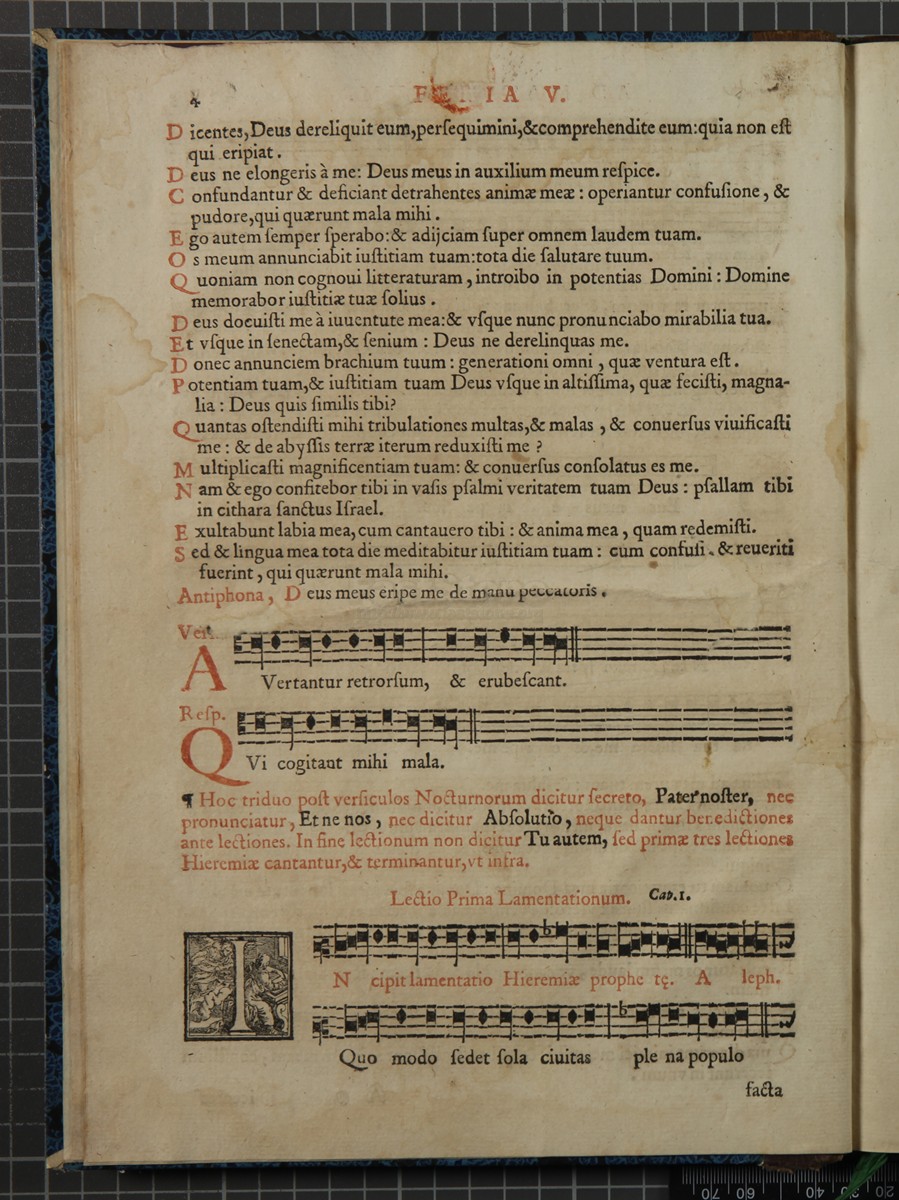 4
FERIA V.
Dicentes, Deus dereliquit eum, perſequimini, & comprehendite eum: quia non eſt
qui eripiat.
Deus ne elongeris à me: Deus meus in auxilium meum reſpice.
Confundantur & deficiant detrahentes animæ meæ: operiantur confuſione, &
pudore, qui quærunt mala mihi.
Ego autem ſemper ſperabo: & adijciam ſuper omnem laudem tuam.
Os meum annunciabit iuſtitiam tuam: tota die ſalutare tuum.
Quoniam non cognoui litteraturam, introibo in potentias Domini: Domine
memorabor iuſtitiæ tuæ ſolius.
Deus docuiſti me à iuuentute mea: & vſque nunc pronunciabo mirabilia tua.
Et vſque in ſenectam, & ſenium: Deus ne derelinquas me.
Donec annunciem brachium tuum: generationi omni, quæ ventura eſt.
Potentiam tuam, & iuſtitiam tuam Deus vſque in altiſſima, quæ feciſti, magna-
lia: Deus quis ſimilis tibi?
Quantas oſtendiſti mihi tribulationes multas, & malas, & conuerſus viuificaſti
me: & de abyſſis terræ iterum reduxiſti me?
Multiplicaſti magnificentiam tuam: & conuerſus conſolatus es me.
Nam & ego confitebor tibi in vaſis pſalmi veritatem tuam Deus: pſallam tibi
in cithara ſanctus Iſrael.
Exultabunt labia mea, cum cantauero tibi: & anima mea, quam redemiſti.
Sed & lingua mea tota die meditabitur iuſtitiam tuam: cum confuſi, & reueriti
fuerint, qui quærunt mala mihi.
Antiphona, Deus meus eripe me de manu peccatoris.
Verſ.
AVertantur retrorſum, & erubeſcant.
Reſp.
QVi cogitant mihi mala.
¶ Hoc triduo poſt verſiculos Nocturnorum dicitur ſecreto, Pater noſter, nec
pronunciatur, Et ne nos, nec dicitur Abſolutio, neque dantur benedictiones
ante lectiones. In fine lectionum non dicitur Tu autem, ſed primæ tres lectiones
Hieremiæ cantantur, & terminantur, vt infra.
Lectio Prima Lamentationum. Cap. 1.
IN cipit lamentatio Hieremiæ prophe tę. A leph.
Quo modo ſedet ſola ciuitas ple na populo
facta